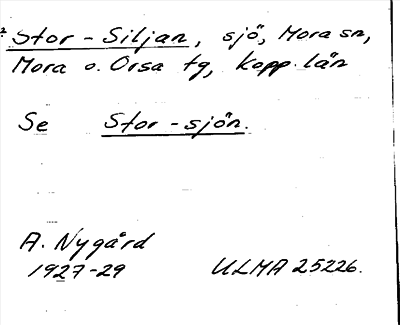 Stor-Siljan, sjö, Mora sn,
Mora o. Orsa tg, Kopp. län
Se Stor-sjön.
A. Nygård
1927-29 ULMA 25226.